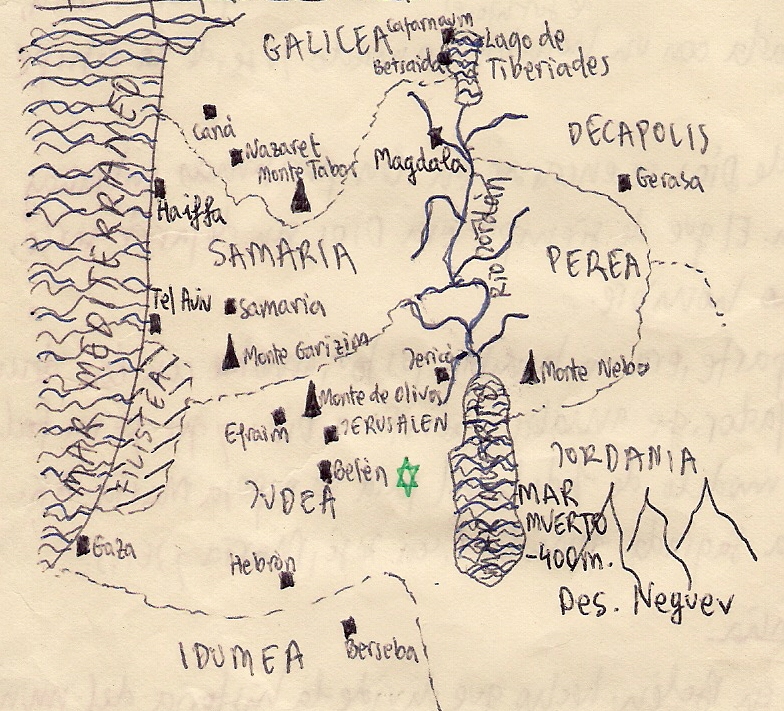 GALILEA
Cafarnaum
Betsaida
Lago de
Tiberiades
Caná
Nazaret
Monte Tabor
Magdala
DECAPOLIS
Gerasa
Haiffa
MAR MEDITERRANEO
SAMARIA
Río Jordán
PEREA
Tel Aviv
Samaria
Monte Garizim
Jericó
Monte Nebo
FILISTEA
Monte de Olivos
Efraim
JERUSALEN
Belén
JUDEA
JORDANIA
MAR
MUERTO
-400m.
Gaza
Hebrón
Des. Neguev
IDUMEA
Berseba